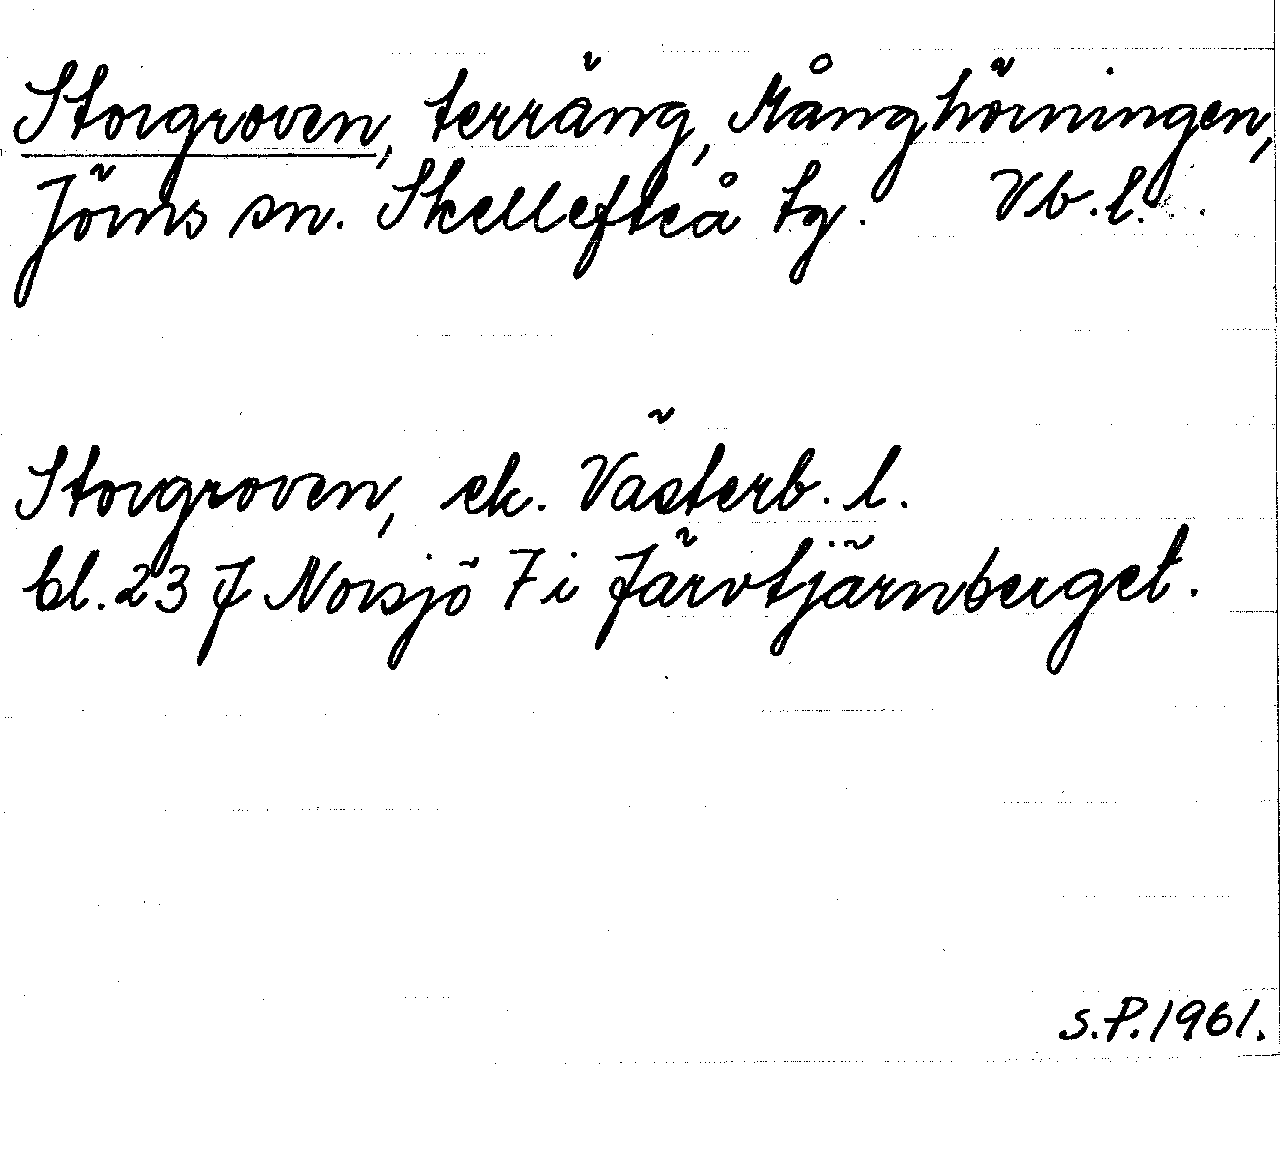 Storgroven, terräng, Månghörningen,
Jörns sn. Skellefteå tg. Vb. l.
Storgroven, ek. Västerb. l.
bl. 23 J Norsjö 7 i Järvtjärnberget.
S.P. 1961.